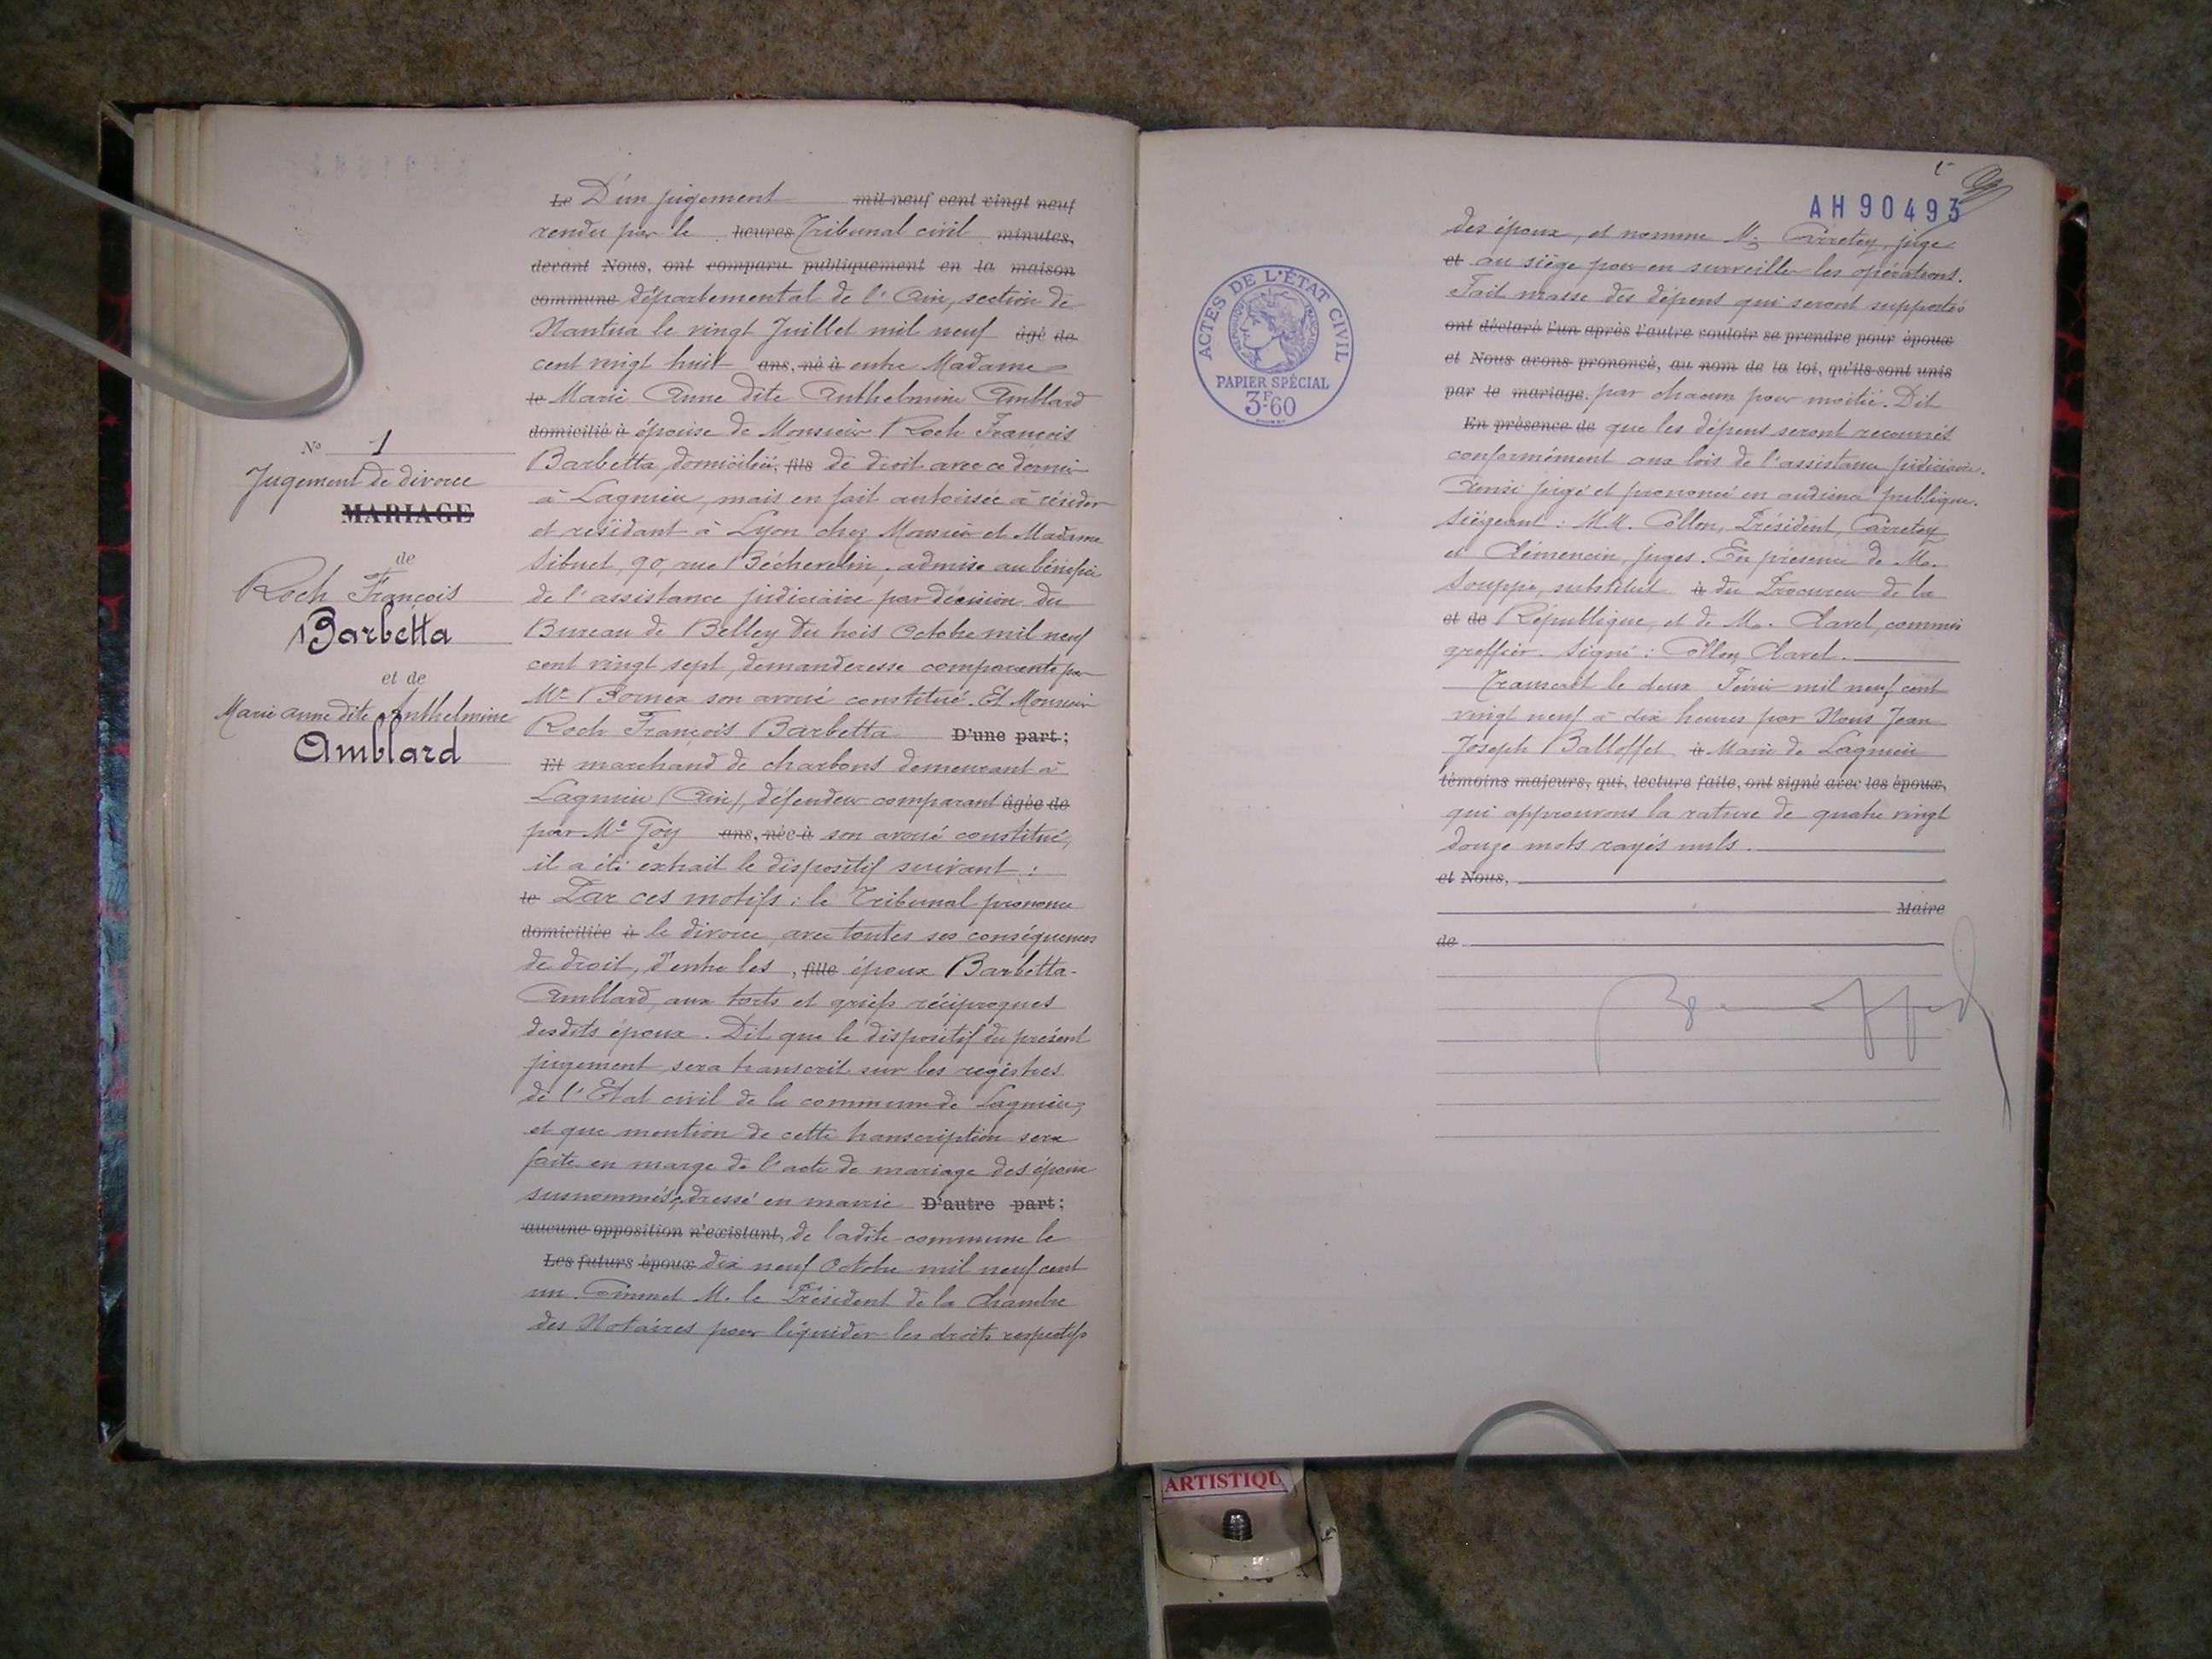 N° 1
Jugement de divorce
MARIAGE
de
Roch François
Barbetta
et de
Marie Anne dite Anthelmine
Amblard
Le D'un jugement mil neuf cent vingt neuf
rendu par le heures Tribunal civil minutes,
devant Nous, ont comparu publiquement en la maison
commune départemental de l'Ain, section de
Nantua le vingt Juillet mil neuf âgé de
cent vingt huit ans, né à entre Madame
le Marie Anne dite Anthelmine Amblard
domicilié à épouse de Monsieur Roch François
Barbetta, domiciliée, fils de droit avec ce dernier
à Lagnieu, mais en fait autorisée à résider
et résidant à Lyon chez Monsieur et Madame
Sibuet, 90, rue Béchevelin, admise au bénéfice
de l'assistance judiciaire par décision du
Bureau de Belley du trois Octobre mil neuf
cent vingt sept, demanderesse comparante par
Me Bornex son avoué constitué. Et Monsieur
Roch François Barbetta D'une part;
Et marchand de charbons demeurant à
Lagnieu (Ain), défendeur comparant âgée de
par Me Goy ans, née à son avoué constitué,
il a été extrait le dispositif suivant :
le Par ces motifs : le Tribunal prononce
domiciliée à le divorce, avec toutes ses conséquences
de droit, d'entre les , fille époux Barbetta-
Amblard, aux torts et griefs réciproques
desdits époux. Dit que le dispositif du présent
jugement sera transcrit sur les registres
de l'Etat civil de la commune de Lagnieu,
et que mention de cette transcription sera
faite en marge de l'acte de mariage des époux
susnommés, dressé en mairie D'autre part;
aucune opposition n'existant, de ladite commune le
Les futurs époux dix neuf Octobre mil neuf cent
un. Commet M. le Président de la Chambre
des Notaires pour liquider les droits respectifs
ACTES DE L'ÉTAT CIVIL
PAPIER SPÉCIAL
3F60
AH 90493
des époux, et nomme M. Carretey, juge
et au siège pour en surveiller les opérations.
Fait masse des dépens qui seront supportés
ont déclaré l'un après l'autre vouloir se prendre pour époux
et Nous avons prononcé, au nom de la loi, qu'ils sont unis
par le mariage. par chacun pour moitié. Dit
En présence de que les dépens seront recouvrés
conformément aux lois de l'assistance judiciaire.
Ainsi jugé et prononcé en audience publique.
Siégeant : MM. Collon, Président, Carretey
et Clémencin, juges. En présence de M.
Souppe, substitut à du Procureur de la
et de République, et de M. Clavel, commis
greffier. Signé : Collon, Clavel.
Transcrit le deux Février mil neuf cent
vingt neuf à dix heures par Nous Jean
Joseph Balloffet à Maire de Lagnieu
témoins majeurs, qui, lecture faite, ont signé avec les époux,
qui approuvons la rature de quatre vingt
douze mots rayés nuls.
et Nous,
Maire
de
ARTISTIQU